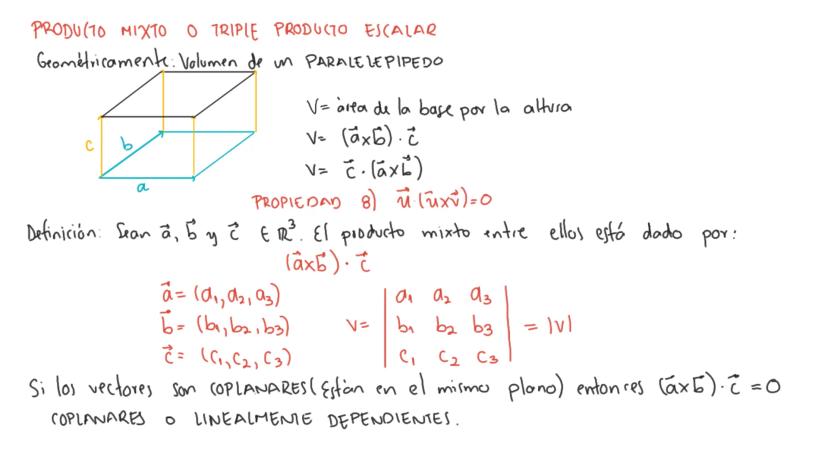 PRODUCTO MIXTO O TRIPLE PRODUCTO ESCALAR
Geométricamente: Volumen de un PARALELEPIPEDO
V= àrea de la base por la altura
c b
V= (a⃗xb⃗)·c⃗
V= c⃗·(a⃗xb⃗)
a
PROPIEDAD 8) u⃗·(u⃗xv⃗)=0
Definición: Sean a⃗, b⃗ y c⃗ ∈ ℝ³. El producto mixto entre ellos está dado por:
(a⃗xb⃗)·c⃗
a⃗= (a₁,a₂,a₃) a₁ a₂ a₃
b⃗= (b₁,b₂,b₃) V= b₁ b₂ b₃ = |V|
c⃗= (c₁,c₂,c₃) c₁ c₂ c₃
Si los vectores son COPLANARES (Están en el mismo plano) entonces (a⃗xb⃗)·c⃗ =0
COPLANARES o LINEALMENTE DEPENDIENTES.